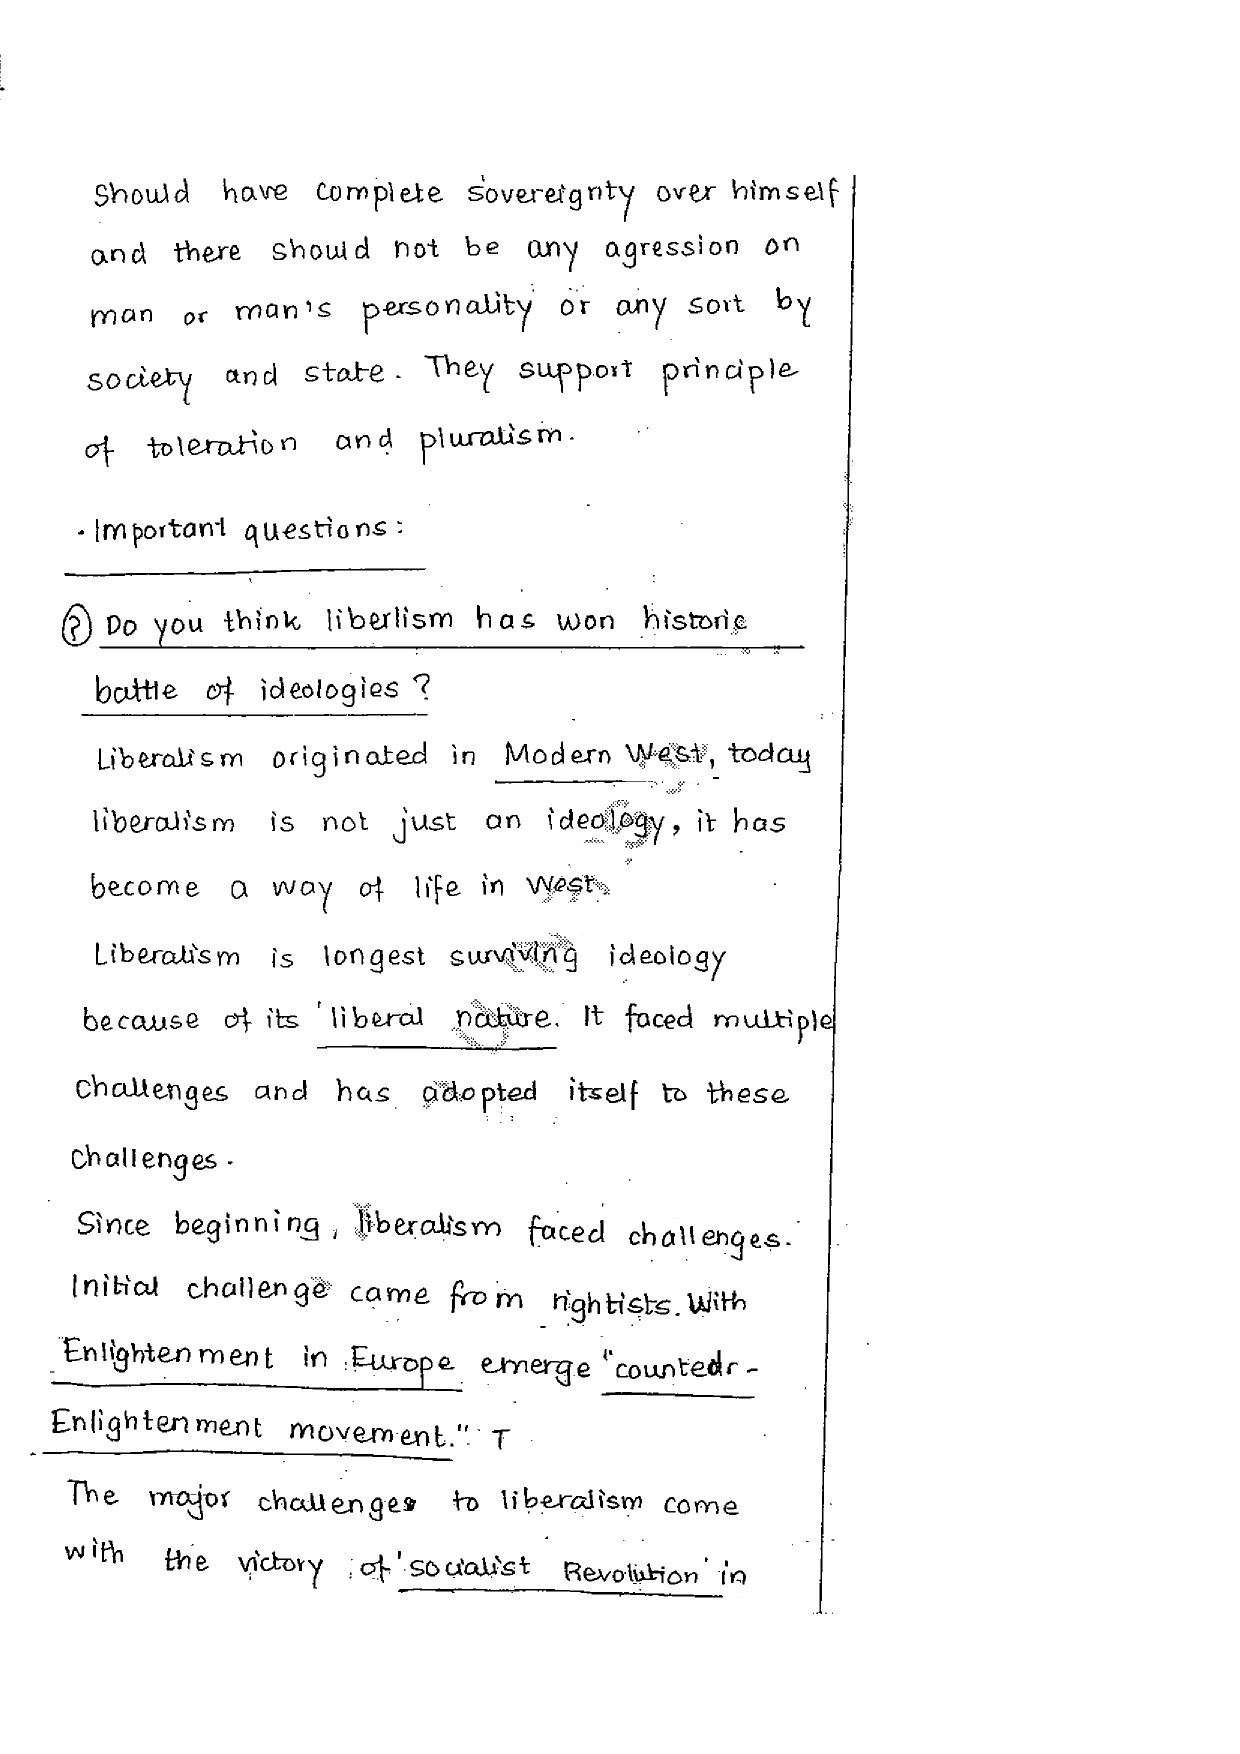 Should have complete sovereignty over himself
and there should not be any agression on
man or man's personality or any sort by
society and state. They support principle
of toleration and pluralism.
· Important questions:
? Do you think liberlism has won historic
battle of ideologies ?
Liberalism originated in Modern West, today
liberalism is not just an ideology, it has
become a way of life in West.
Liberalism is longest surviving ideology
because of its 'liberal nature. It faced multiple
challenges and has adopted itself to these
challenges.
Since beginning, liberalism faced challenges.
Initial challenge came from rightists. With
Enlightenment in Europe emerge "countedr-
Enlightenment movement." T
The major challenges to liberalism come
with the victory of 'socialist Revolution' in